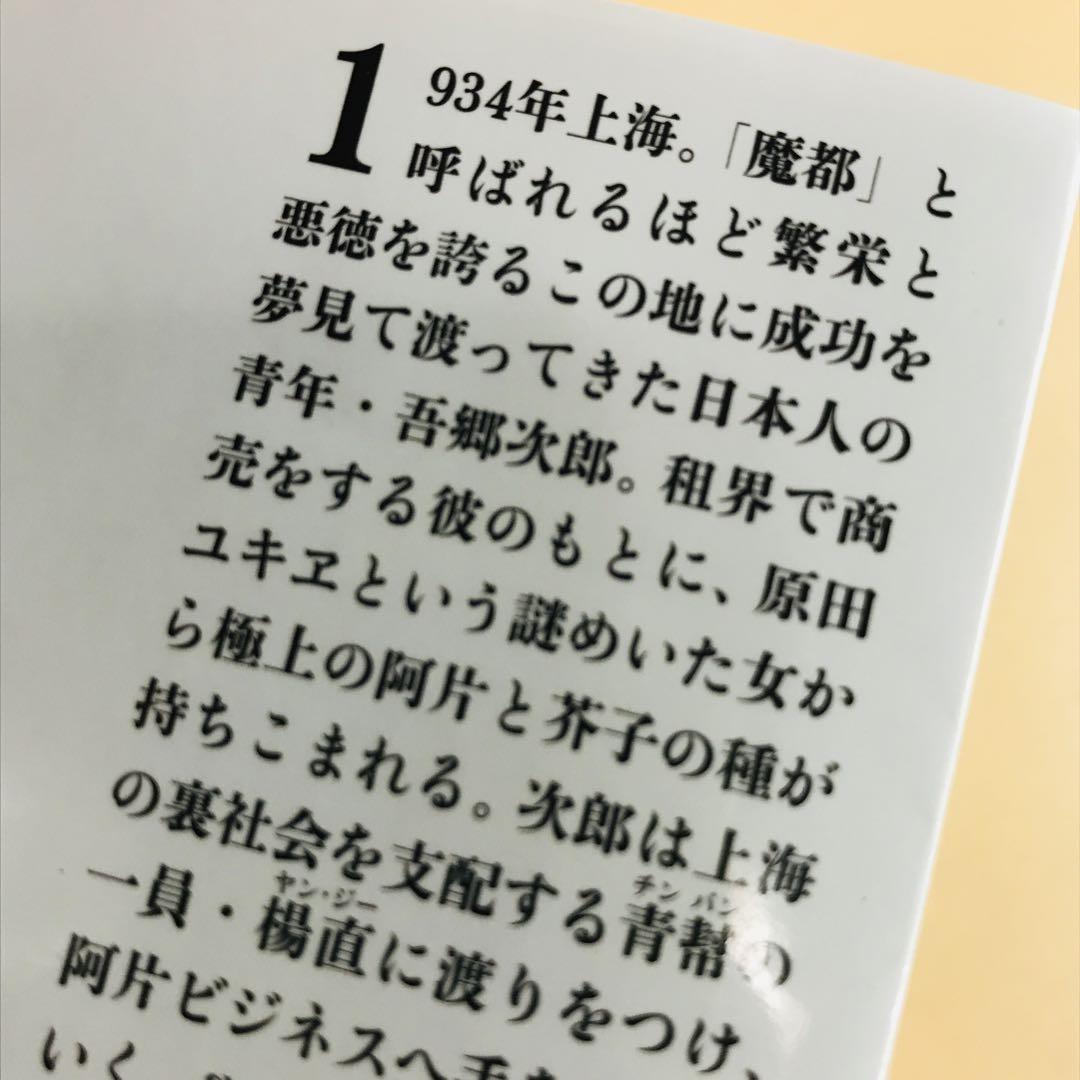 1934年上海。「魔都」と
呼ばれるほど繁栄と
悪徳を誇るこの地に成功を
夢見て渡ってきた日本人の
青年・吾郷次郎。租界で商
売をする彼のもとに、原田
ユキヱという謎めいた女か
ら極上の阿片と芥子の種が
持ちこまれる。次郎は上海
の裏社会を支配する青幇の
チンパン
一員・楊直に渡りをつけ、
ヤン・ジー
阿片ビジネスへ手
いく